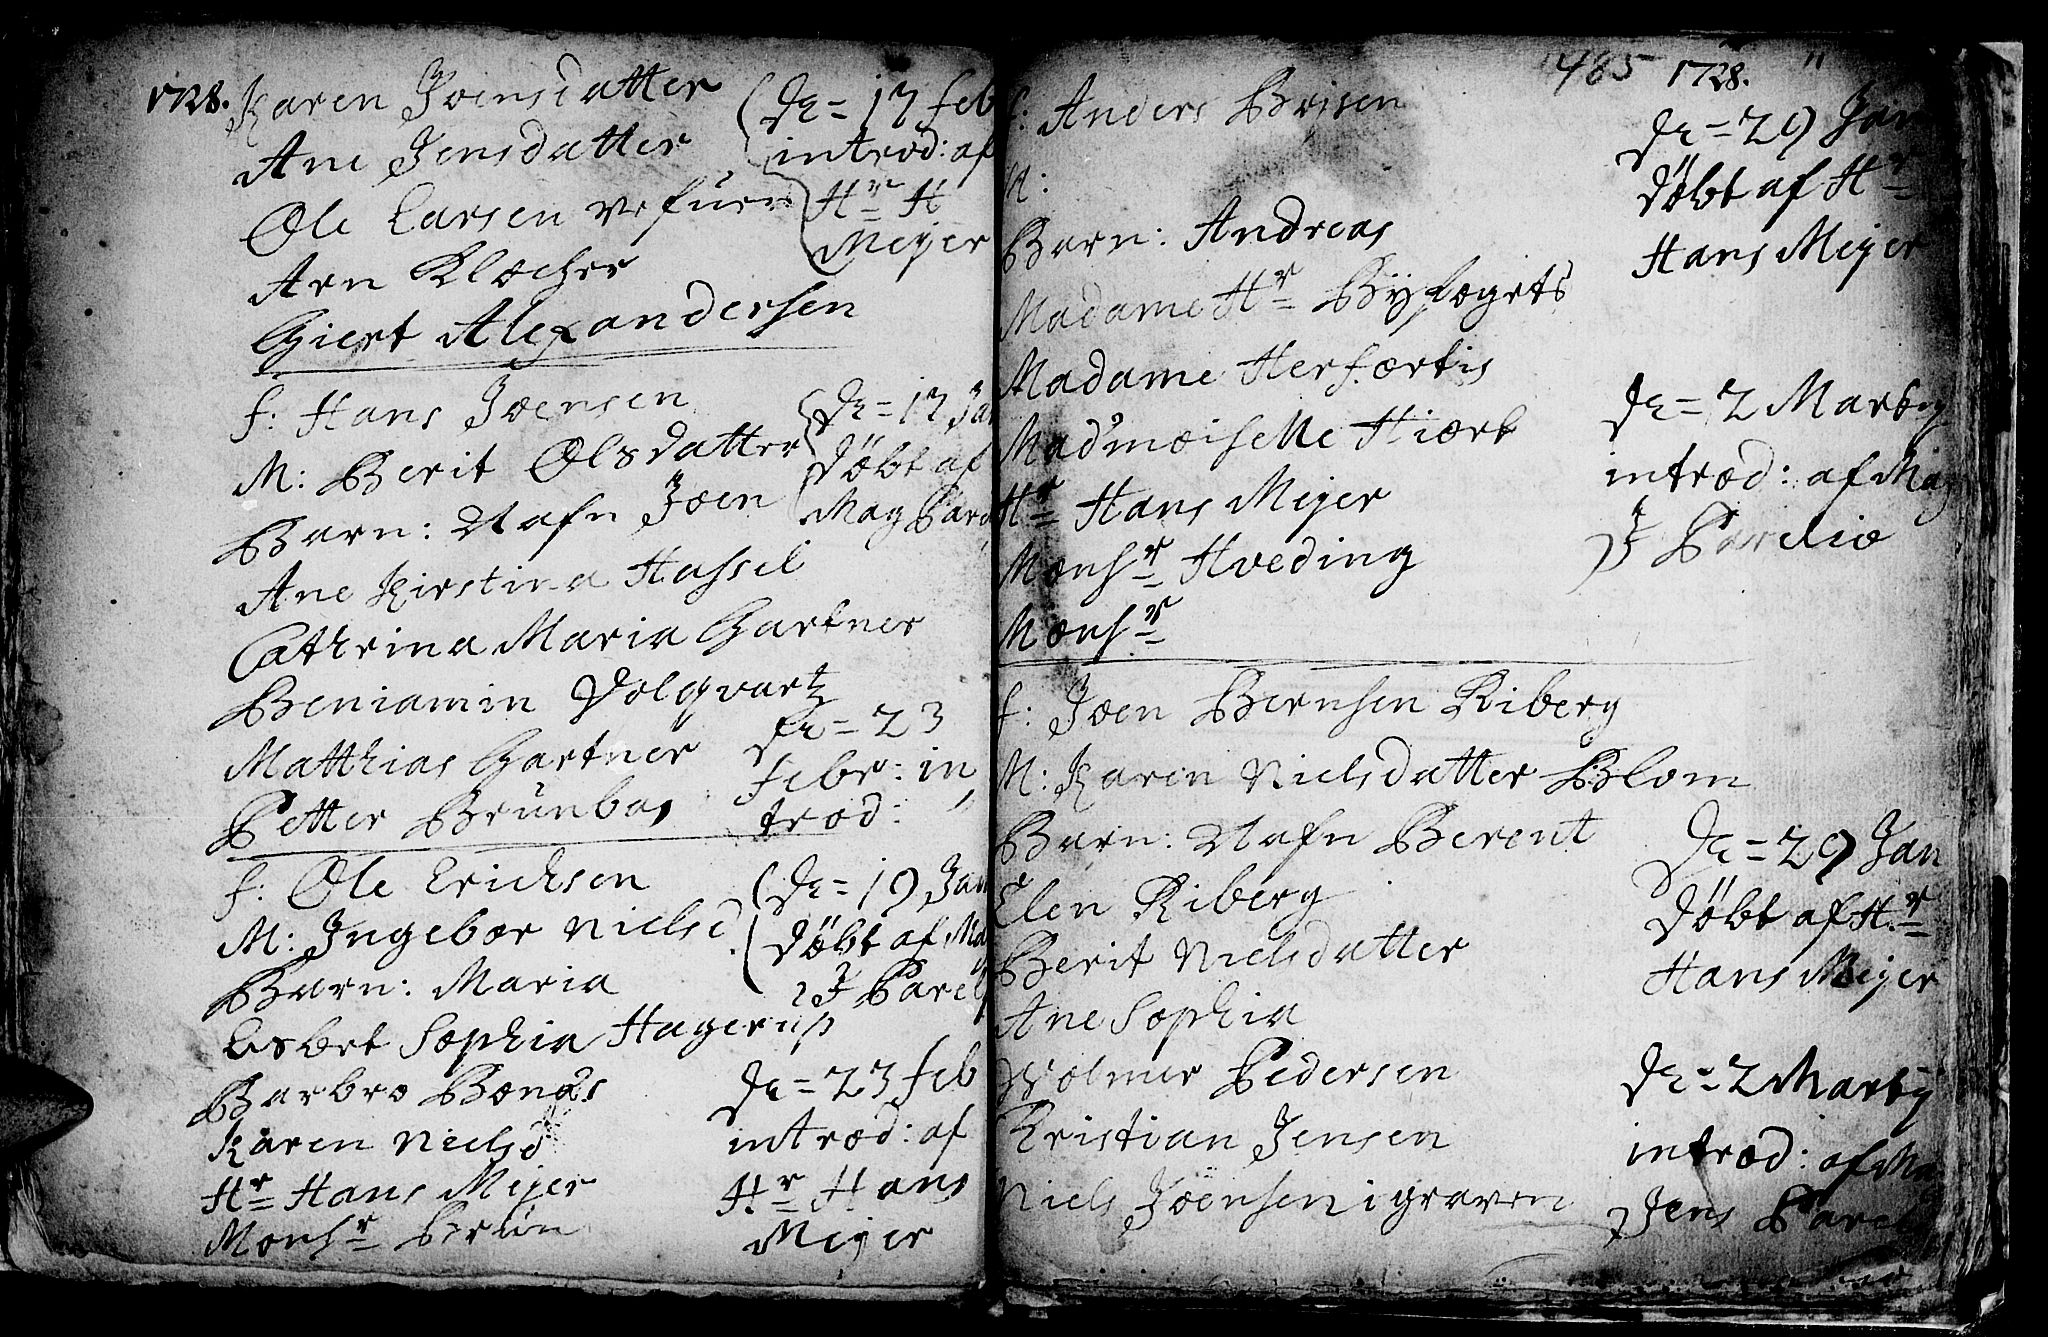 1728.
Karen Joensdatter
Ane Jensdatter
Ole Larsen
Arn Klocher
Giert Alexandersen
d= 17 feb
introd: af
Hr H
Meyer
f: Hans Joensen
M: Berit Olsdatter
Barn: Nafn Joen
Ane Kirstina Hassel
Cathrina Maria Gartner
Beniamin Volqvartz
Matthias Gartner
Petter Brünbas
d= 17 Jan
døbt af
Mag Par
d= 23
febr: in
trod:
f: Ole Ericksen
M: Ingebor Nielsd
Barn: Maria
Lisbet Sophia Hagerup
Barbro
Karen Nielsd
Hr Hans Meyer
Monsr Brün
d= 19 Jan
døbt af Ma
J Parel
d= 23 feb
introd: af
Hr Hans
Meyer
485 1728. 11
f: Anders Brisen
M:
Barn: Andreas
Madame Hr Byfogets
Madame Herfortis
Madmoiselle Hiort
Hr Hans Meyer
Monsr Hveding
Monsr
d= 29 Jan
døbt af Hr
Hans Meyer
d= 2 Marty
introd: af Mag
J Parelio
f: Joen Bernsen Riberg
M: Karen Nielsdatter Blom
Barn: Nafn Berent
Elen Riberg
Berit Nielsdatter
Ane Sophia
Wolmer Pedersen
Kristian Jensen
Niels Joensen i graven
d= 29 Jan
døbt af Hr
Hans Meyer
d= 2 Marty
introd: af Ma
Jens Parel